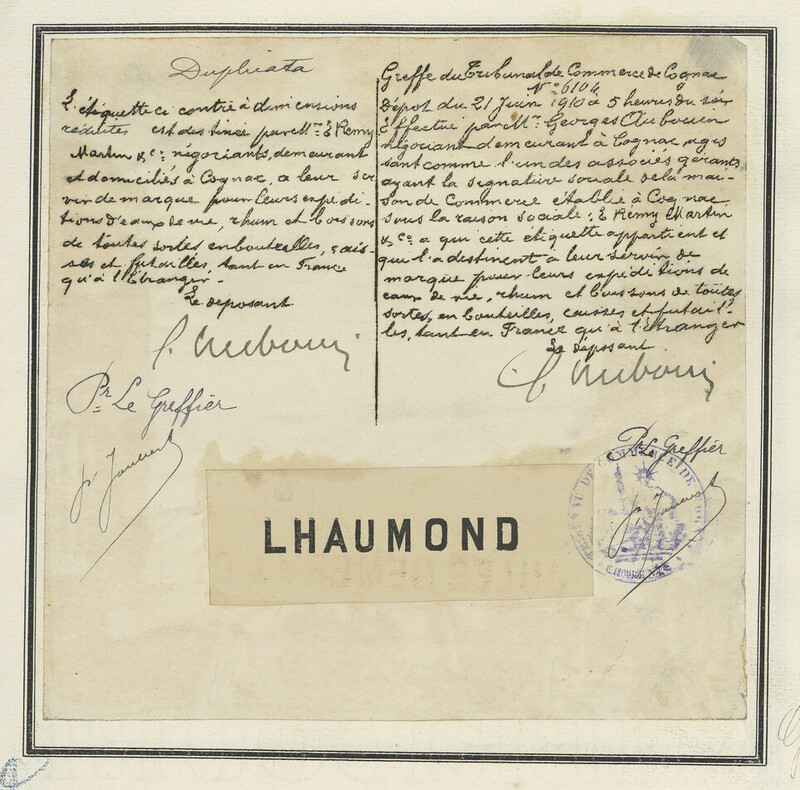 Duplicata
L'étiquette ci contre à dimensions
réduites est destinée par MM. E. Remy
Martin & Co négociants, demeurant
et domiciliés à Cognac, a leur ser
vir de marque pour leurs expédi-
tions d'eaux de vie, rhum et boissons
de toutes sortes en bouteilles, cais-
ses et futailles, tant en France
qu'à l'Etranger.
Le déposant
Pr Le Greffier
Greffe du Tribunal de Commerce de Cognac
No 6104
Dépot du 21 Juin 1910 à 5 heures du soir
Effectué par Mr Georges Auboin
négociant demeurant à Cognac, agis
sant comme l'un des associés gérants
ayant la signature sociale de la mai-
son de Commerce établie à Cognac
sous la raison sociale: E. Remy Martin
& Co a qui cette étiquette appartient et
qui l'a destinent a leur servir de
marque pour leurs expéditions de
eaux de vie, rhum et boissons de toutes
sortes, en bouteilles, caisses et futail-
les, tant en France qu'à l'étranger
Le déposant
Pr Le Greffier
LHAUMOND